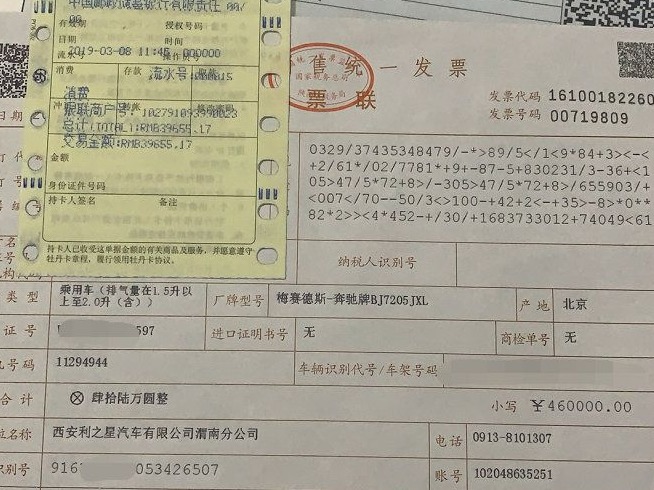 中国邮政储蓄银行有限责任 00/
00
有效期
授权号码
日期
时间
2019-03-08 11:45 000000
流水号
操作员号
消费
存款
流水号:000015
消费
银联商户号: 102791093990023
总计(TOTAL):RMB39655.17
交易金额:RMB39655.17
金额
身份证件号码
持卡人签名
备注
持卡人已收受这单据金额的有关商品及服务,并愿意遵守
牡丹卡章程,履行领用牡丹卡协议。
售统一发票
票联
国家税务总局
发票代码 16100182260
发票号码 00719809
0329/37435348479/-*>89/5</1<9*84+3><-<
+2/61*/02/7781*+9+-87-5+830231/3-36+<1
05>47/5*72+8>/-305>47/5*72+8>/655903/+
<007</70--50/3<>100-+42+2<-+35>-8>*0**
82*2>><4*452-+/30/+1683733012+74049<61
纳税人识别号
类型
乘用车(排气量在1.5升以
上至2.0升(含))
厂牌型号
梅赛德斯-奔驰牌BJ7205JXL
产地
北京
证号
597
进口证明书号
无
商检单号
无
机号码
11294944
车辆识别代号/车架号码
合计
⊗肆拾陆万圆整
小写 ¥460000.00
位名称
西安利之星汽车有限公司渭南分公司
电话
0913-8101307
识别号
916
053426507
账号
102048635251